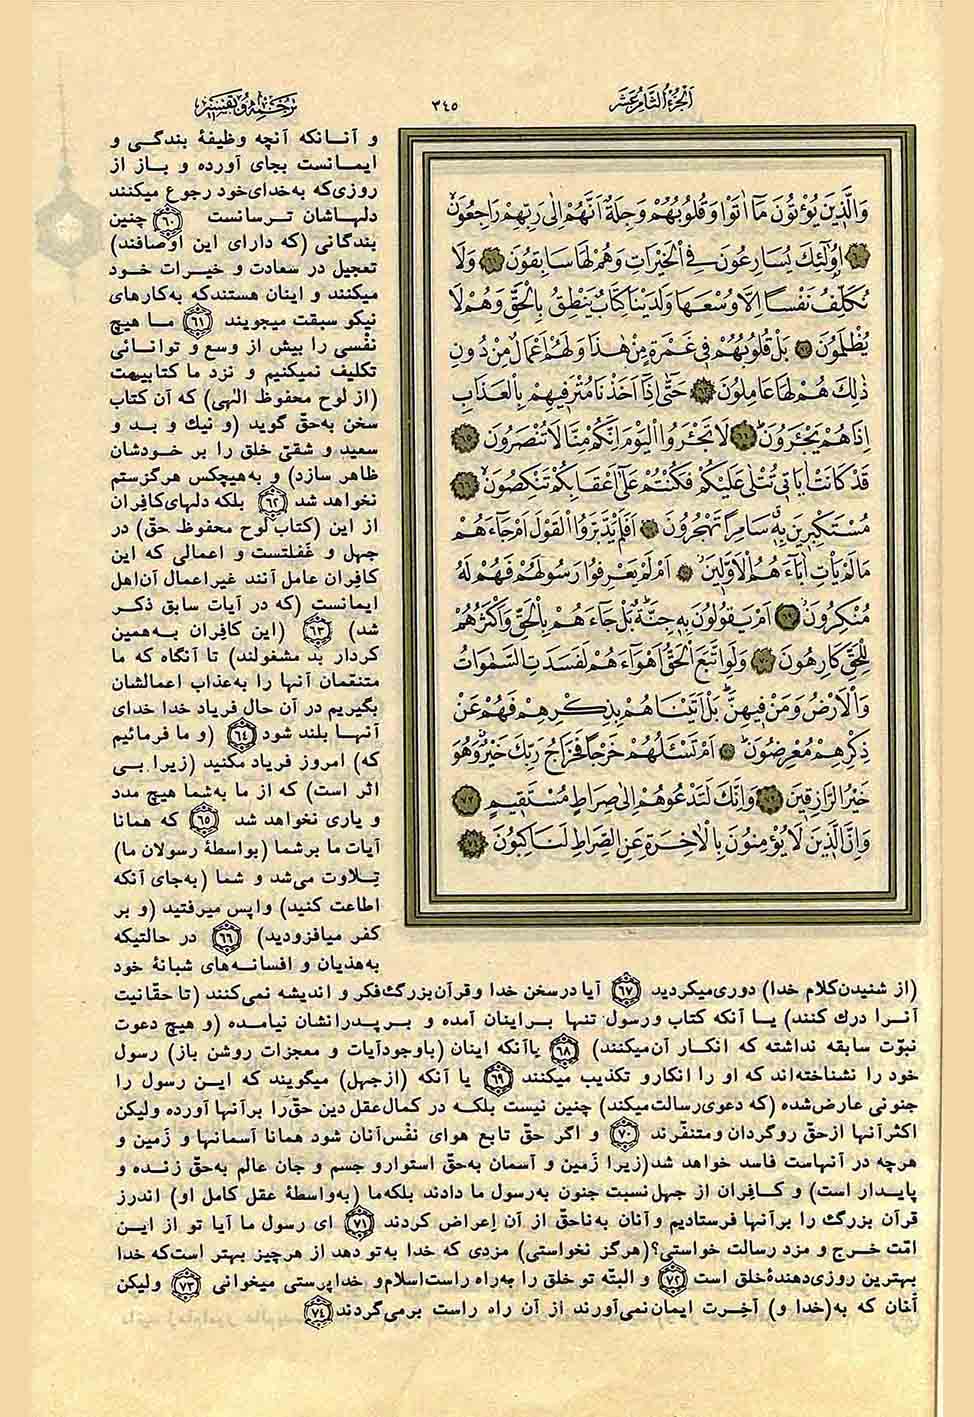 الجزء الثامن عشر
٣٤٥
ترجمه و تفسیر
وَالَّذِينَ يُؤْتُونَ مَا اٰتَوْا وَقُلُوبُهُمْ وَجِلَةٌ اَنَّهُمْ اِلٰى رَبِّهِمْ رَاجِعُونَ
﴿٦٠﴾ اُولٰٓئِكَ يُسَارِعُونَ فِى الْخَيْرَاتِ وَهُمْ لَهَا سَابِقُونَ ﴿٦١﴾ وَلَا
نُكَلِّفُ نَفْسًا اِلَّا وُسْعَهَا وَلَدَيْنَا كِتَابٌ يَنْطِقُ بِالْحَقِّ وَهُمْ لَا
يُظْلَمُونَ ﴿٦٢﴾ بَلْ قُلُوبُهُمْ فِى غَمْرَةٍ مِنْ هٰذَا وَلَهُمْ اَعْمَالٌ مِنْ دُونِ
ذٰلِكَ هُمْ لَهَا عَامِلُونَ ﴿٦٣﴾ حَتّٰٓى اِذَٓا اَخَذْنَا مُتْرَفِيهِمْ بِالْعَذَابِ
اِذَا هُمْ يَجْـَٔرُونَ ﴿٦٤﴾ لَا تَجْـَٔرُوا الْيَوْمَ اِنَّكُمْ مِنَّا لَا تُنْصَرُونَ ﴿٦٥﴾
قَدْ كَانَتْ اٰيَاتِى تُتْلٰى عَلَيْكُمْ فَكُنْتُمْ عَلٰٓى اَعْقَابِكُمْ تَنْكِصُونَ ﴿٦٦﴾
مُسْتَكْبِرِينَ بِهِ سَامِرًا تَهْجُرُونَ ﴿٦٧﴾ اَفَلَمْ يَدَّبَّرُوا الْقَوْلَ اَمْ جَٓاءَهُمْ
مَا لَمْ يَأْتِ اٰبَٓاءَهُمُ الْاَوَّلِينَ ﴿٦٨﴾ اَمْ لَمْ يَعْرِفُوا رَسُولَهُمْ فَهُمْ لَهُ
مُنْكِرُونَ ﴿٦٩﴾ اَمْ يَقُولُونَ بِهِ جِنَّةٌ بَلْ جَٓاءَهُمْ بِالْحَقِّ وَاَكْثَرُهُمْ
لِلْحَقِّ كَارِهُونَ ﴿٧٠﴾ وَلَوِ اتَّبَعَ الْحَقُّ اَهْوَٓاءَهُمْ لَفَسَدَتِ السَّمٰوَاتُ
وَالْاَرْضُ وَمَنْ فِيهِنَّ بَلْ اَتَيْنَاهُمْ بِذِكْرِهِمْ فَهُمْ عَنْ
ذِكْرِهِمْ مُعْرِضُونَ ﴿٧١﴾ اَمْ تَسْـَٔلُهُمْ خَرْجًا فَخَرَاجُ رَبِّكَ خَيْرٌ وَهُوَ
خَيْرُ الرَّازِقِينَ ﴿٧٢﴾ وَاِنَّكَ لَتَدْعُوهُمْ اِلٰى صِرَاطٍ مُسْتَقِيمٍ ﴿٧٣﴾
وَاِنَّ الَّذِينَ لَا يُؤْمِنُونَ بِالْاٰخِرَةِ عَنِ الصِّرَاطِ لَنَاكِبُونَ ﴿٧٤﴾
و آنانکه آنچه وظیفهٔ بندگی و
ایمانست بجای آورده و باز از
روزی‌که به‌خدای‌خود رجوع میکنند
دلهاشان ترسانست (٦٠) چنین
بندگانی (که دارای این اوصافند)
تعجیل در سعادت و خیرات خود
میکنند و اینان هستندکه به‌کارهای
نیکو سبقت میجویند (٦١) ما هیچ
نفسی را بیش از وسع و توانائی
تکلیف نمیکنیم و نزد ما کتابیست
(از لوح محفوظ الهی) که آن کتاب
سخن به‌حق گوید (و نیك و بد و
سعید و شقیّ خلق را بر خودشان
ظاهر سازد) و به‌هیچکس هرگزستم
نخواهد شد (٦٢) بلکه دلهای‌کافران
از این (کتاب لوح محفوظ حقّ) در
جهل و غفلتست و اعمالی که این
کافران عامل آنند غیراعمال آن‌اهل
ایمانست (که در آیات سابق ذکر
شد) (٦٣) (این کافران به‌همین
کردار بد مشغولند) تا آنگاه که ما
متنعّمان آنها را به‌عذاب اعمالشان
بگیریم در آن حال فریاد خدا خدای
آنها بلند شود (٦٤) (و ما فرمائیم
که) امروز فریاد مکنید (زیرا بی
اثر است) که از ما به‌شما هیچ مدد
و یاری نخواهد شد (٦٥) که همانا
آیات ما برشما (بواسطهٔ رسولان ما)
تلاوت می‌شد و شما (به‌جای آنکه
اطاعت کنید) واپس میرفتید (و بر
کفر میافزودید) (٦٦) در حالتیکه
به‌هذیان و افسانه‌های شبانهٔ خود
(از شنیدن‌کلام خدا) دوری‌میکردید (٦٧) آیا درسخن خدا وقرآن‌بزرگ‌فکر و اندیشه نمی‌کنند (تا حقّانیت
آنرا درك کنند) یا آنکه کتاب ورسول تنها براینان آمده و برپدرانشان نیامده (و هیچ دعوت
نبوّت سابقه نداشته که انکار آن‌میکنند) (٦٨) یاآنکه اینان (باوجودآیات و معجزات روشن باز) رسول
خود را نشناخته‌اند که او را انکارو تکذیب میکنند (٦٩) یا آنکه (ازجهل) میگویند که این رسول را
جنونی عارض‌شده (که دعوی‌رسالت‌میکند) چنین نیست بلکه در کمال‌عقل دین حقّ‌را برآنها آورده ولیکن
اکثرآنها ازحق روگردان ومتنفّرند (٧٠) و اگر حقّ تابع هوای نفس‌آنان شود همانا آسمانها و زمین و
هرچه در آنهاست فاسد خواهد شد(زیرا زمین و آسمان به‌حق استوارو جسم و جان عالم به‌حق زنده و
پایدار است) و کافران از جهل‌نسبت جنون به‌رسول ما دادند بلکه‌ما (به‌واسطهٔ عقل کامل او) اندرز
قرآن بزرگ را برآنها فرستادیم وآنان به‌ناحق از آن اعراض کردند (٧١) ای رسول ما آیا تو از این
امّت خرج و مزد رسالت خواستی؟(هرگز نخواستی) مزدی که خدا به‌تو دهد از هرچیز بهتر است‌که خدا
بهترین روزی‌دهندهٔ‌خلق است (٧٢) و البتّه تو خلق را به‌راه راست‌اسلام‌و خداپرستی میخوانی (٧٣) ولیکن
آنان که به‌(خدا و) آخرت ایمان‌نمی‌آورند از آن راه راست برمی‌گردند(٧٤)